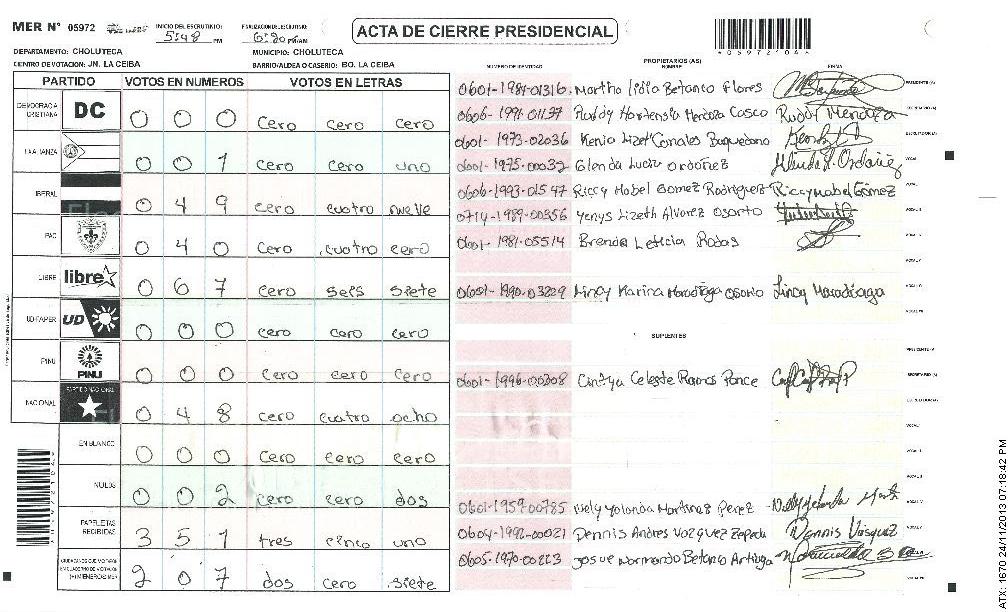 MER N° 05972 INICIO DEL ESCRUTINIO: 5:48 PM FINALIZACION DE ESCRUTINIO: 6:20 PM/AM
ACTA DE CIERRE PRESIDENCIAL
DEPARTAMENTO: CHOLUTECA MUNICIPIO: CHOLUTECA
CENTRO DE VOTACION: JN. LA CEIBA BARRIO/ALDEA O CASERIO: BO. LA CEIBA
PARTIDO VOTOS EN NUMEROS VOTOS EN LETRAS
DEMOCRACIA CRISTIANA DC 0 0 0 cero cero cero
0 0 1 cero cero uno
0 4 9 cero cuatro nueve
PAC 0 4 0 cero cuatro cero
LIBRE libre 0 6 7 cero seis siete
UD-FAPER UD 0 0 0 cero cero cero
PINU PINU 0 0 0 cero cero cero
NACIONAL PARTIDO NACIONAL 0 4 8 cero cuatro ocho
EN BLANCO 0 0 0 cero cero cero
NULOS 0 0 2 cero cero dos
PAPELETAS RECIBIDAS 3 5 1 tres cinco uno
2 0 7 dos cero siete
NUMERO DE IDENTIDAD PROPIETARIOS (AS) NOMBRE FIRMA
Flores PRESIDENTE (A)
0606-1991-01137 Casco Ruddy Mendoza SECRETARIO (A)
0601-1973-02036 Kenia Lizet Canales Baquedano
0601-1975-00032 Glenda Lucia Ordoñez
0606-1993-01547 Riccy Mabel Gomez Rodriguez Riccy Mabel Gómez
0714-1989-00356 Yenys Lizeth Alvarez Osorto
0601-1981-05514 Brenda Leticia Rodas
Lincy Karina Maradiaga Osorto Lincy Maradiaga
SUPLENTES
0601-1996-00308 Cintya Celeste Ramos Ponce
0601-1959-00785 Nely Yolanda Martinez Perez
0604-1992-00021 Dennis Andres Vazquez Zepeda Dennis Vasquez
0605-1970-00223 Josue Normando Betanco
ATX: 1670 24/11/2013 07:18:42 PM